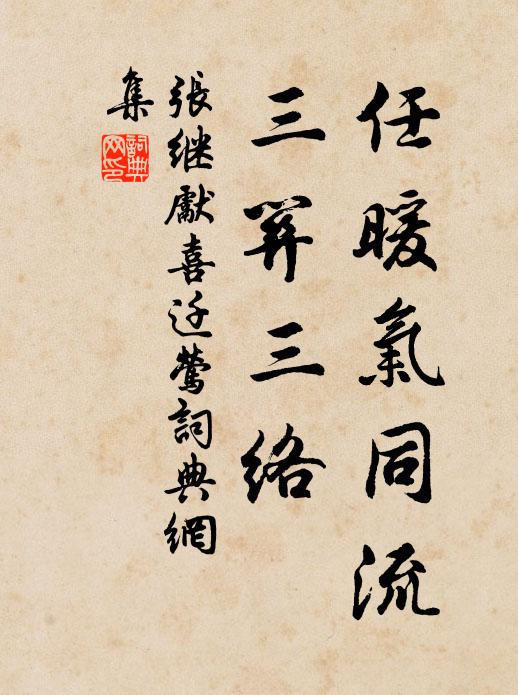 任暖氣同流
三關三絡
張继獻喜迁鶯詞典網
集
詞典
网印